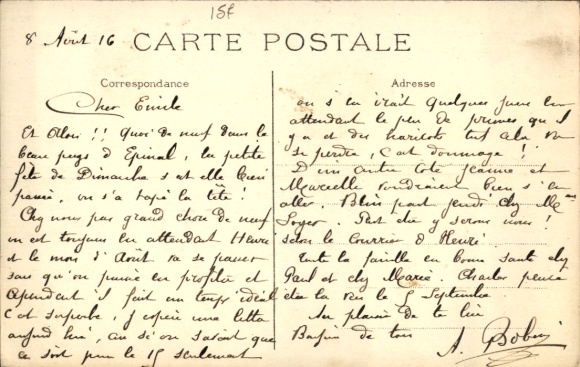 15f
8 Août 16
CARTE POSTALE
Correspondance
Cher Emile
Et Alors !! Quoi de neuf dans le
beau pays d Epinal, la petite
fête de Dimanche s est elle bien
passée, on s'a tapé la tête !
Chez nous pas grand chose de neuf
on est toujours en attendant Henri
et le mois d'Aout va se passer
sans qu'on puisse en profiter et
cependant il fait un temps idéal
C'est superbe, j espère une lettre
aujourd hui, au si on savait que
ce soit pour le 15 seulement
Adresse
on s en irait quelques jours en
attendant le peu de prunes qu il
y a et des haricots tout cela va
se perdre, c'est dommage !
D un autre côté Jeanne et
Marcelle voudraient bien s'en
aller. part jeudi chez Me
Soyer. Peut être y serons nous !
selon le courrier d Henri.
Toute la famille en bonne santé chez
Paul et chez Marie. Charles pense
être là vers le 5 Septembre
Au plaisir de te lire
Baisers de tous
A. Bobin